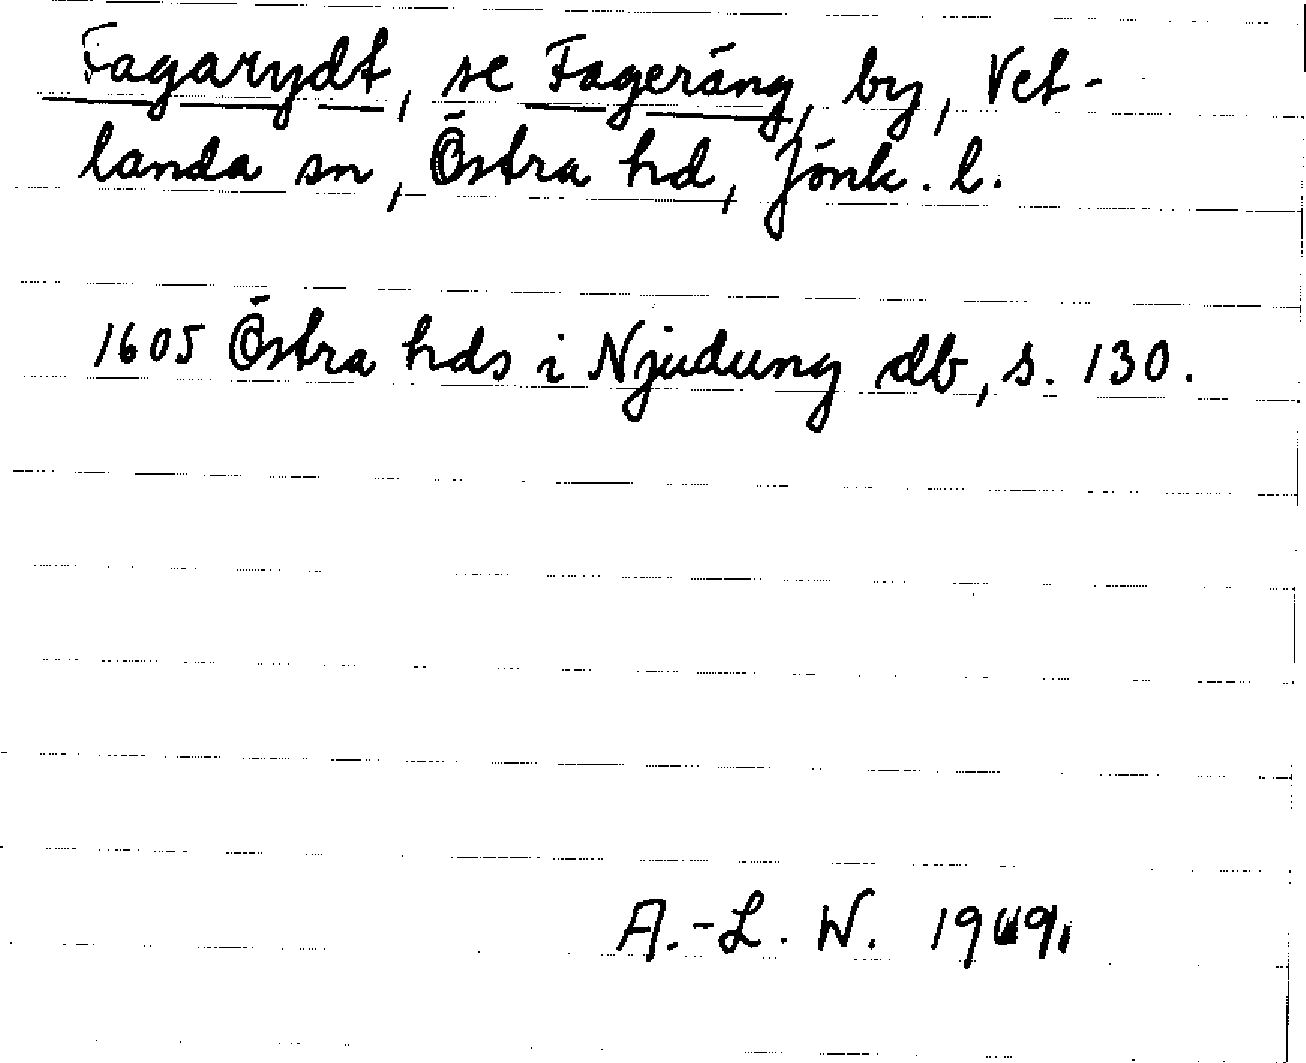 Fagarydt, se Fageräng, by, Vet-
landa sn, Östra hd, Jönk. l.
1605 Östra hds i Njudung db, s. 130.
A.-L. W. 1949.